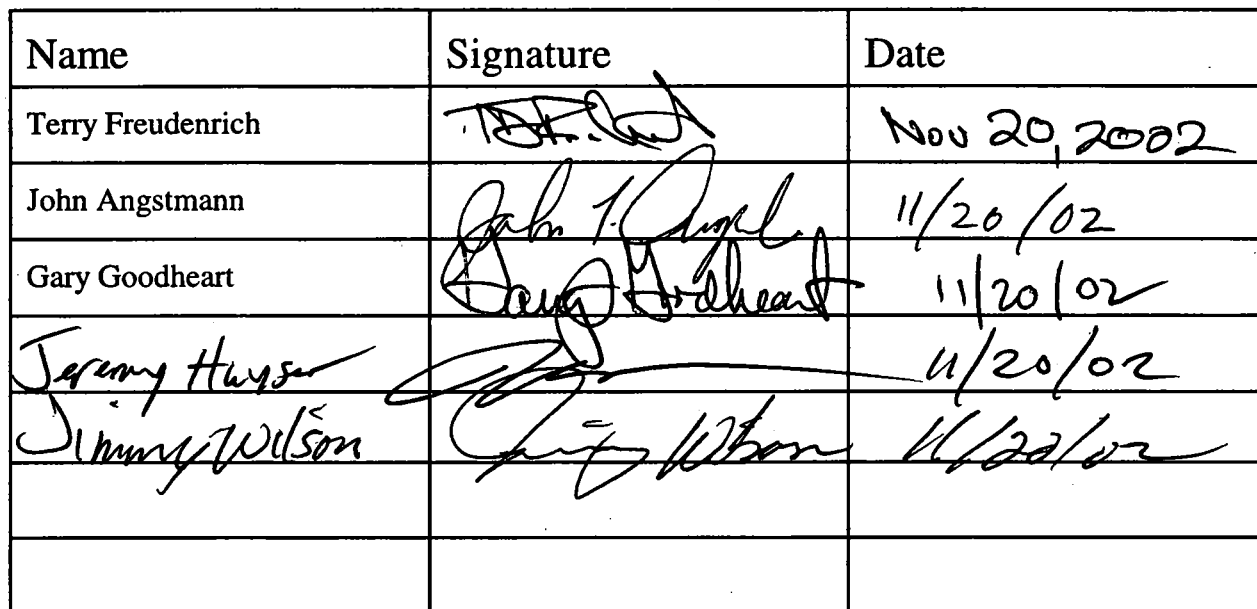 Name Signature Date
Terry Freudenrich Nov 20, 2002
John Angstmann John T. 11/20/02
Gary Goodheart Gary Goodheart 11/20/02
Jeremy 11/20/02
Jimmy Wilson Jimmy Wilson 11/20/02